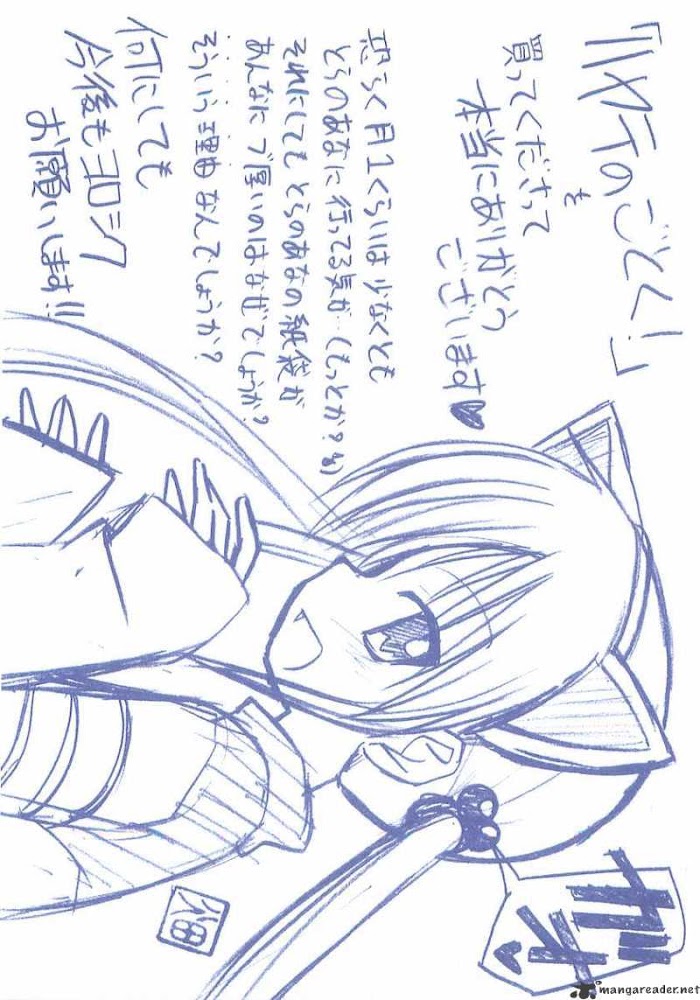 「ハヤテのごとく!」
を
買ってくださって
本当にありがとう
ございます♥
恐らく月1くらいは少なくとも
とらのあなに行ってる気が…(もっとか?笑)
それにしてもとらのあなの紙袋が
あんなにブ厚いのはなぜでしょうか?
そういう理由なんでしょうか?
何にしても
今後もヨロシク
お願いします!!
畑
mangareader.net